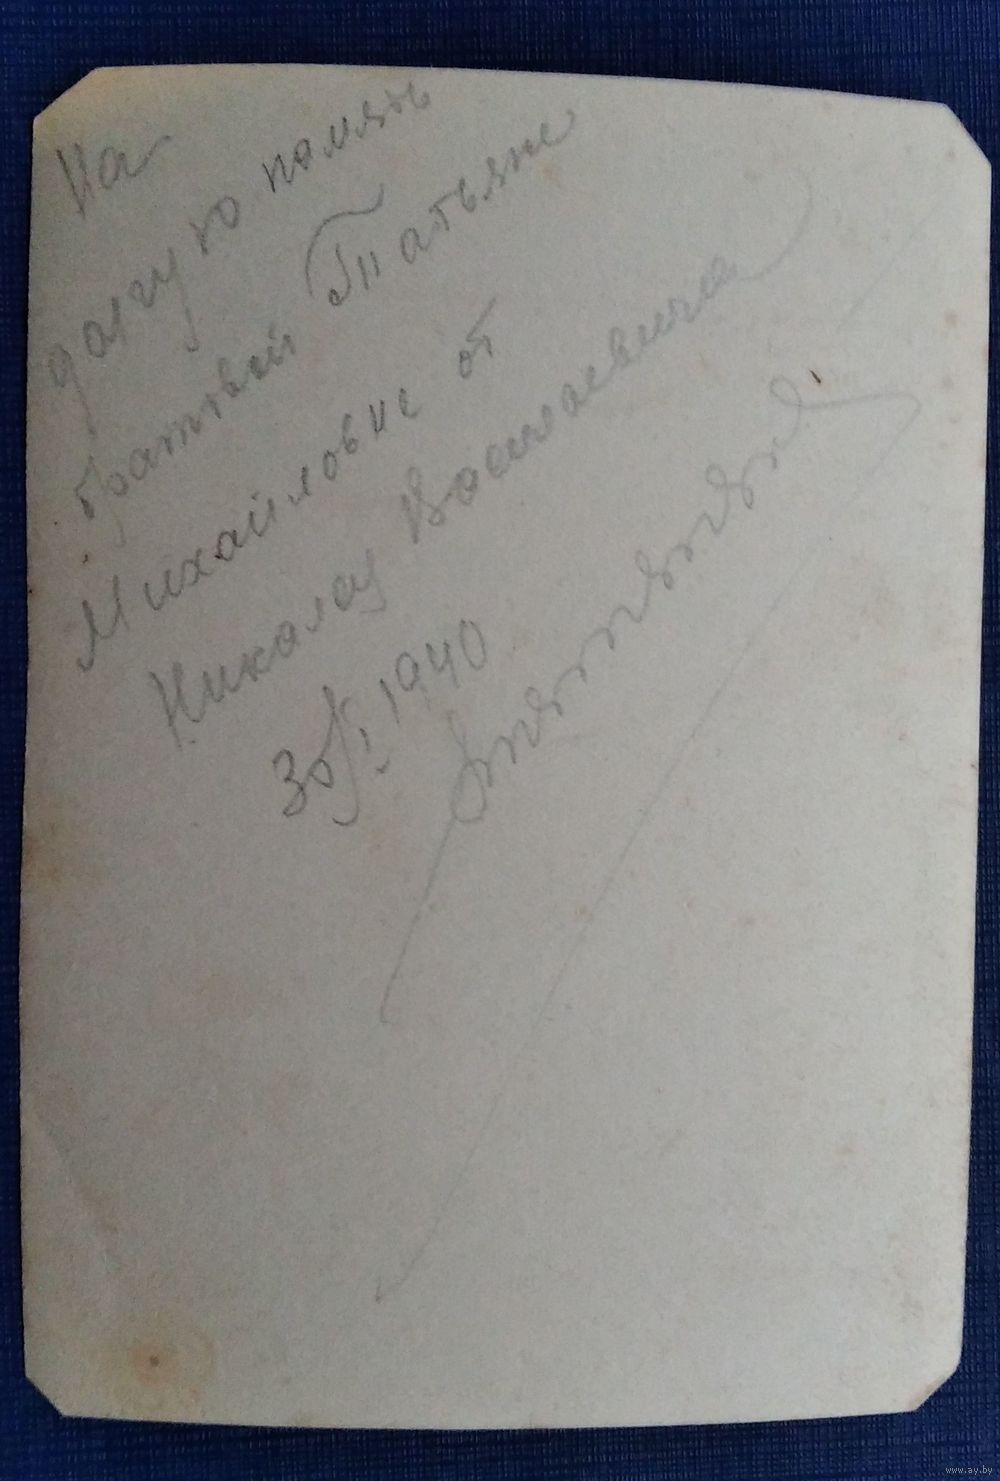 На
долгую память
братовой Татьяне
Михайловне от
Николая Васильевича
1940
www.ay.by